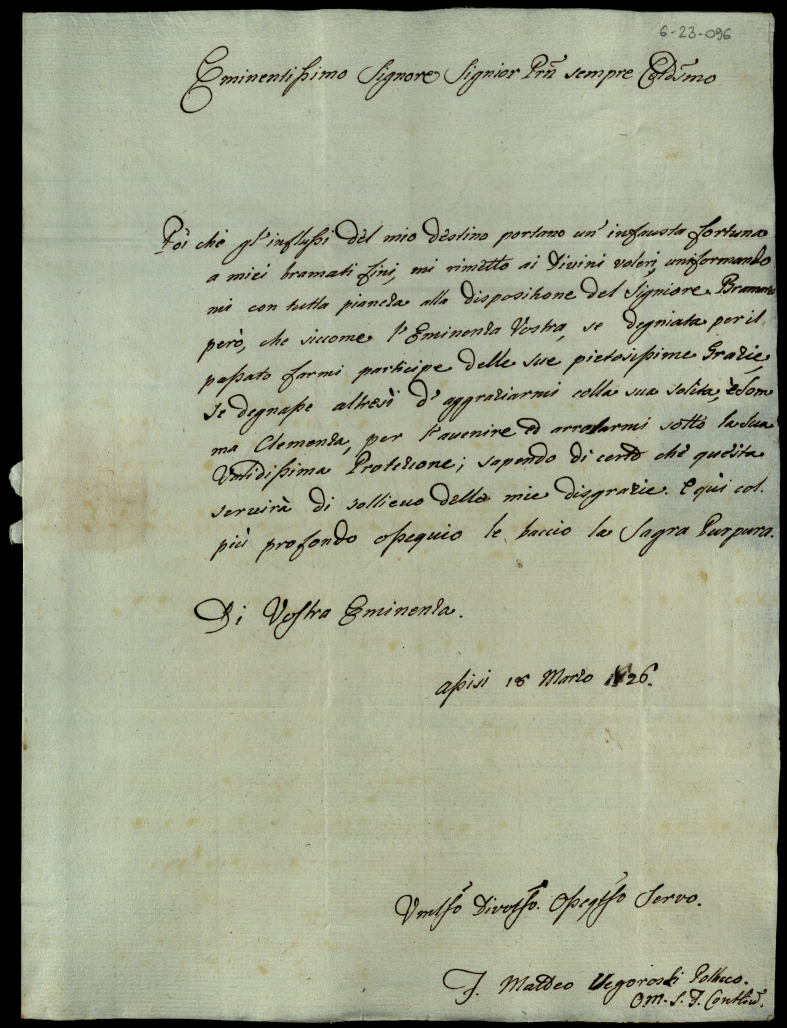 6-23-096
Eminentissimo Signore Signior Prñ sempre Colōsmo
Poi che gl'influssi del mio destino portano un' infausta fortuna
a miei bramati fini, mi rimetto ai Divini voleri, uniformando
mi con tutta pianeza alla dispositione del Signiore. Bramarei
però, che siccome l'Eminenza Vostra, se degniata per il
passato farmi participe delle sue pietosissime Grazie,
se degnasse altresì d'aggraziarmi colla sua solita, è som
ma Clemenza, per l'auenire ed arrolarmi sotto la sua
Validissima Protezione; sapendo di certo che questa
seruirà di sollieuo delle mie disgrazie. E quì col
più profondo ossequio le baccio la Sagra Purpura.
Di Vostra Eminenza.
Assisi 18 Marzo 26.
Vmilſſo Divotſſo. Osseqſſo Servo.
F. Matteo Pollacco.
OM. S. F.